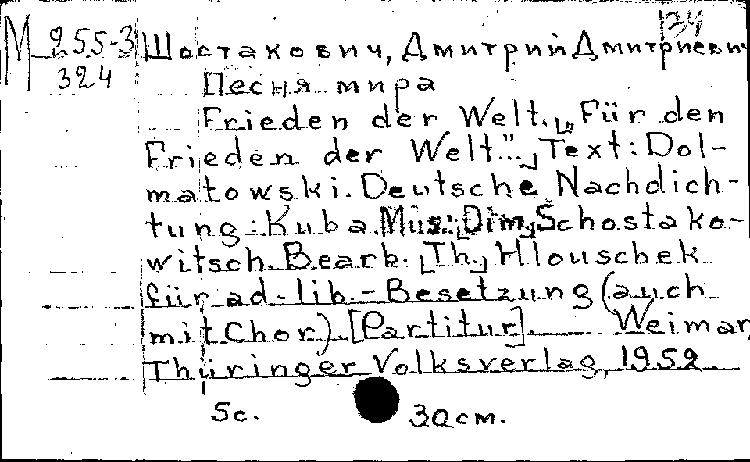 134
М 255-3 Шостакович, Дмитрий Дмитриевич
324 Песня мира
Frieden der Welt. [„Für den
Frieden der Welt."] Text: Dol-
matowski. Deutsche Nachdich-
tung: Kuba. Mus.: [Dm.] Schostako-
witsch. Bearb. [Th.] Hlouschek
für ad-lib.-Besetzung (auch
mit Chor). [Partitur]. Weimar,
Thüringer Volksverlag, 1952.
5с. 30см.